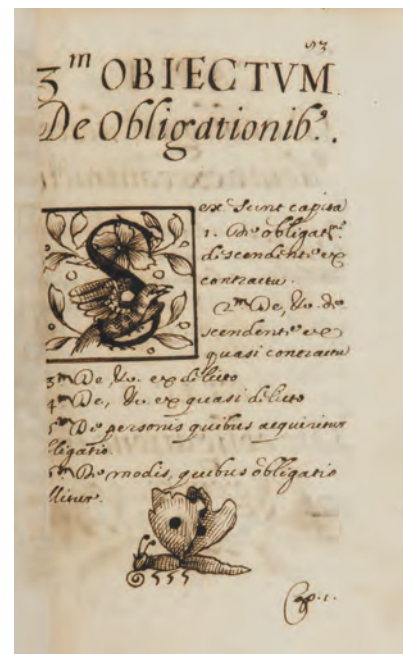 93
3.ᵐ OBIECTVM
De Obligationib.ˢ.
Sex sunt capita
1. De obligat.ⁿᵉ
descendente ex
contractu.
2.ᵐ De, descendente ex
quasi contractu
3.ᵐ De, ex delicto
4.ᵐ De, ex quasi delicto
5.ᵐ De personis quibus acquiritur
ligatio.
De modis, quibus obligatio
llitur.
Cap. 1.